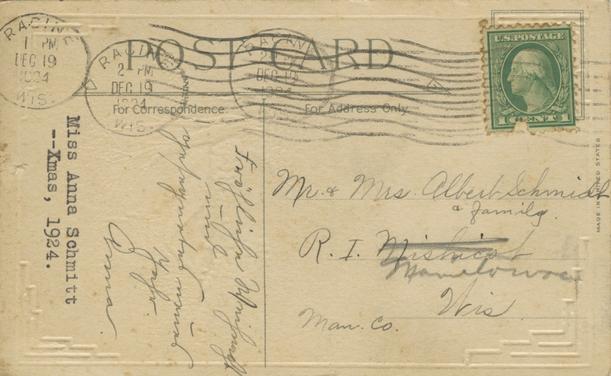 RACINE
1 PM
DEC 19
1924
WIS.
RACINE
2 PM
DEC 19
1924
WIS.
DEC 19
POST CARD
U.S. POSTAGE
1 CENT 1
For Correspondence
For Address Only
Mr. & Mrs. Albert Schmidt
& family.
R. I. Mishicot
Manitowoc
Wis
Man. Co.
Fröhliche Weihnacht
und
Jahr.
Anna.
Miss Anna Schmitt
--Xmas, 1924.
MADE IN UNITED STATES